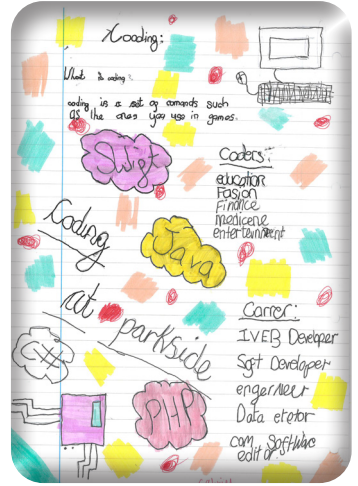 Coading:
What is coding
coding is a set of comands such
as the ones you use in games.
Swift
Coders:
education
Fasion
Finance
medicene
entertainment
Coding
Java
at
parkside
C##
PHP
Carrer:
IVEB Developer
Soft Developer
engerneer
Data
com Software
editor